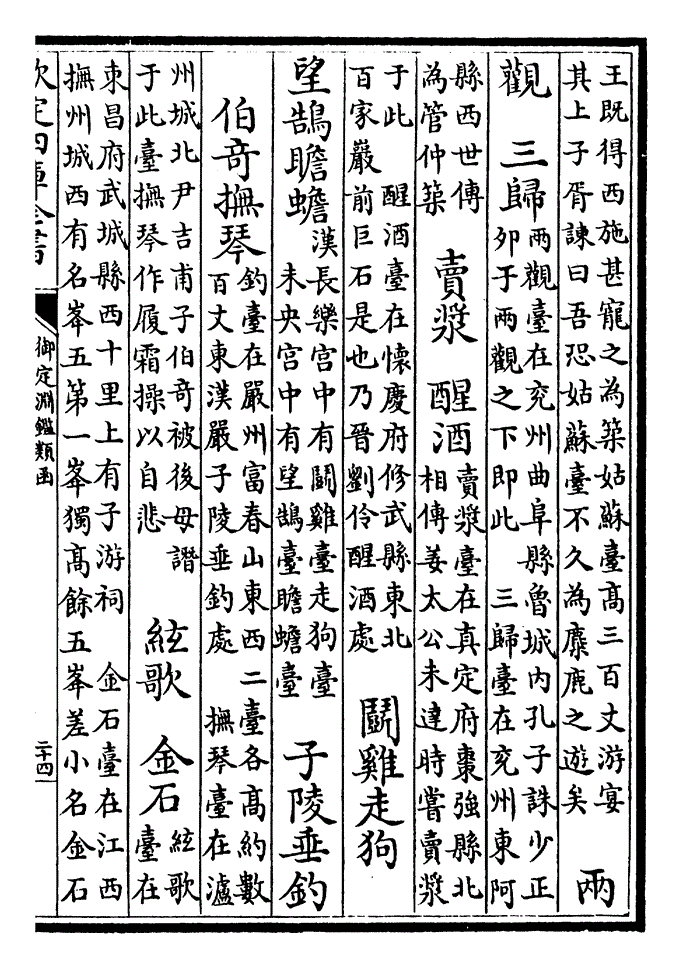 王既得西施甚寵之為築姑蘇臺髙三百丈游宴
其上子胥諫曰吾恐姑蘇臺不久為麋鹿之遊矣
兩
觀 三歸
兩觀臺在兖州曲阜縣魯城内孔子誅少正
夘于兩觀之下即此 三歸臺在兖州東阿
縣西世傳
為管仲築
賣漿 醒酒
賣漿臺在真定府棗強縣北
相傳姜太公未達時嘗賣漿
于此 醒酒臺在懷慶府修武縣東北
百家巖前巨石是也乃晉劉伶醒酒處
鬭雞走狗
望鵠瞻蟾
漢長樂宫中有鬭雞臺走狗臺
未央宫中有望鵠臺瞻蟾臺
子陵垂釣
伯竒撫琴
釣臺在嚴州富春山東西二臺各髙約數
百丈東漢嚴子陵垂釣處 撫琴臺在瀘
州城北尹吉甫子伯竒被後母譖
于此臺撫琴作履霜操以自悲
絃歌 金石
絃歌
臺在
東昌府武城縣西十里上有子游祠 金石臺在江西
撫州城西有名峯五第一峯獨髙餘五峯差小名金石
欽定四庫全書
御定淵鑑類函
二十四